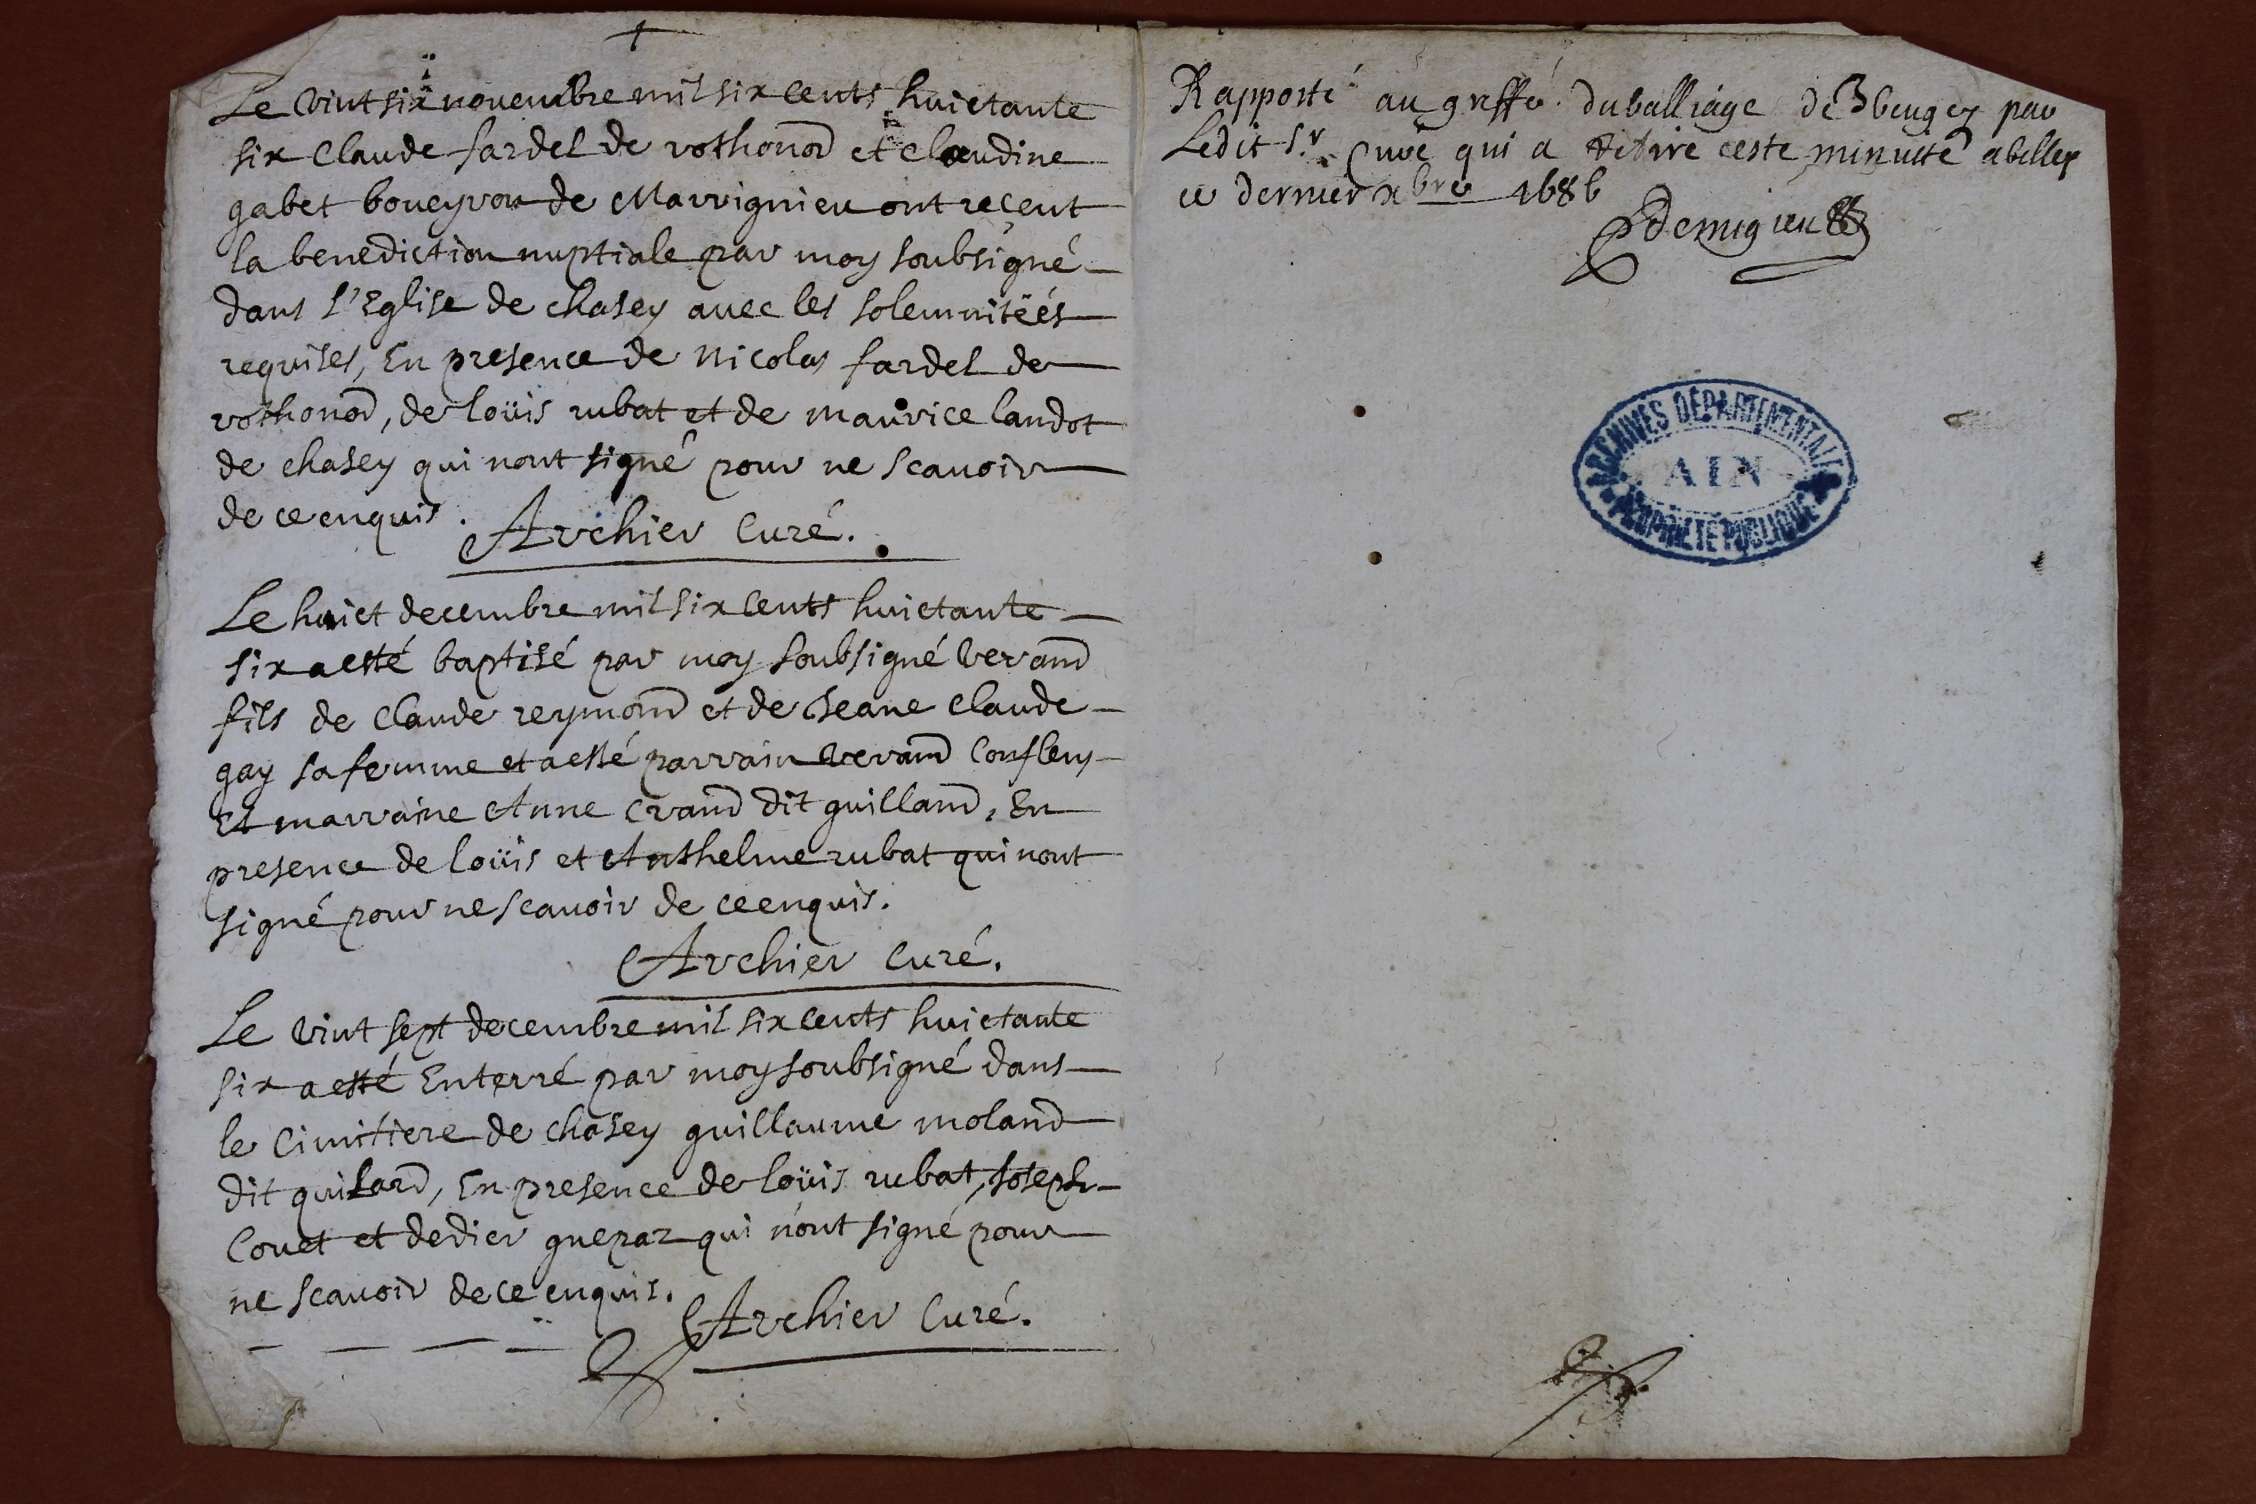 Le vint six novembre mil six cents huictante
six Claude fardel de rothonod et claudine
gabet boueyron de Marrignieu ont receut
la benediction nuptiale par moy soubsigné
dans l'Eglise de chasey avec les solemnitéés
requises, En presence de Nicolas fardel de
rothonod, de loüis rubat et de maurice landot
de chasey qui nont signé pour ne scavoir
de ce enquis.
Archier Curé.
Le huict decembre mil six cents huictante
six a esté baptisé par moy soubsigné Verand
fils de Claude reymond et de Jeane Claude
gay sa femme et a esté parrain Verand
Et marraine Anne Crand dit guilland, En
presence de loüis et Anthelme rubat qui nont
signé pour ne scavoir de ce enquis.
Archier Curé.
Le vint sept decembre mil six cents huictante
six a esté Enterré par moy soubsigné dans
le Cimitiere de chasey guillaume moland
dit guilard, En presence de loüis rubat, Joseph
Couet et dedier guepaz qui n'ont signé pour
ne scavoir de ce enquis.
Archier Curé.
Rapporté au greffe du balliage de beugey par
Ledit Sr Curé qui a retiré ceste minutte a belley
ce dernier xbre 1686
Demigieu
ARCHIVES DÉPARTEMENTALES
AIN
PROPRIÉTÉ PUBLIQUE